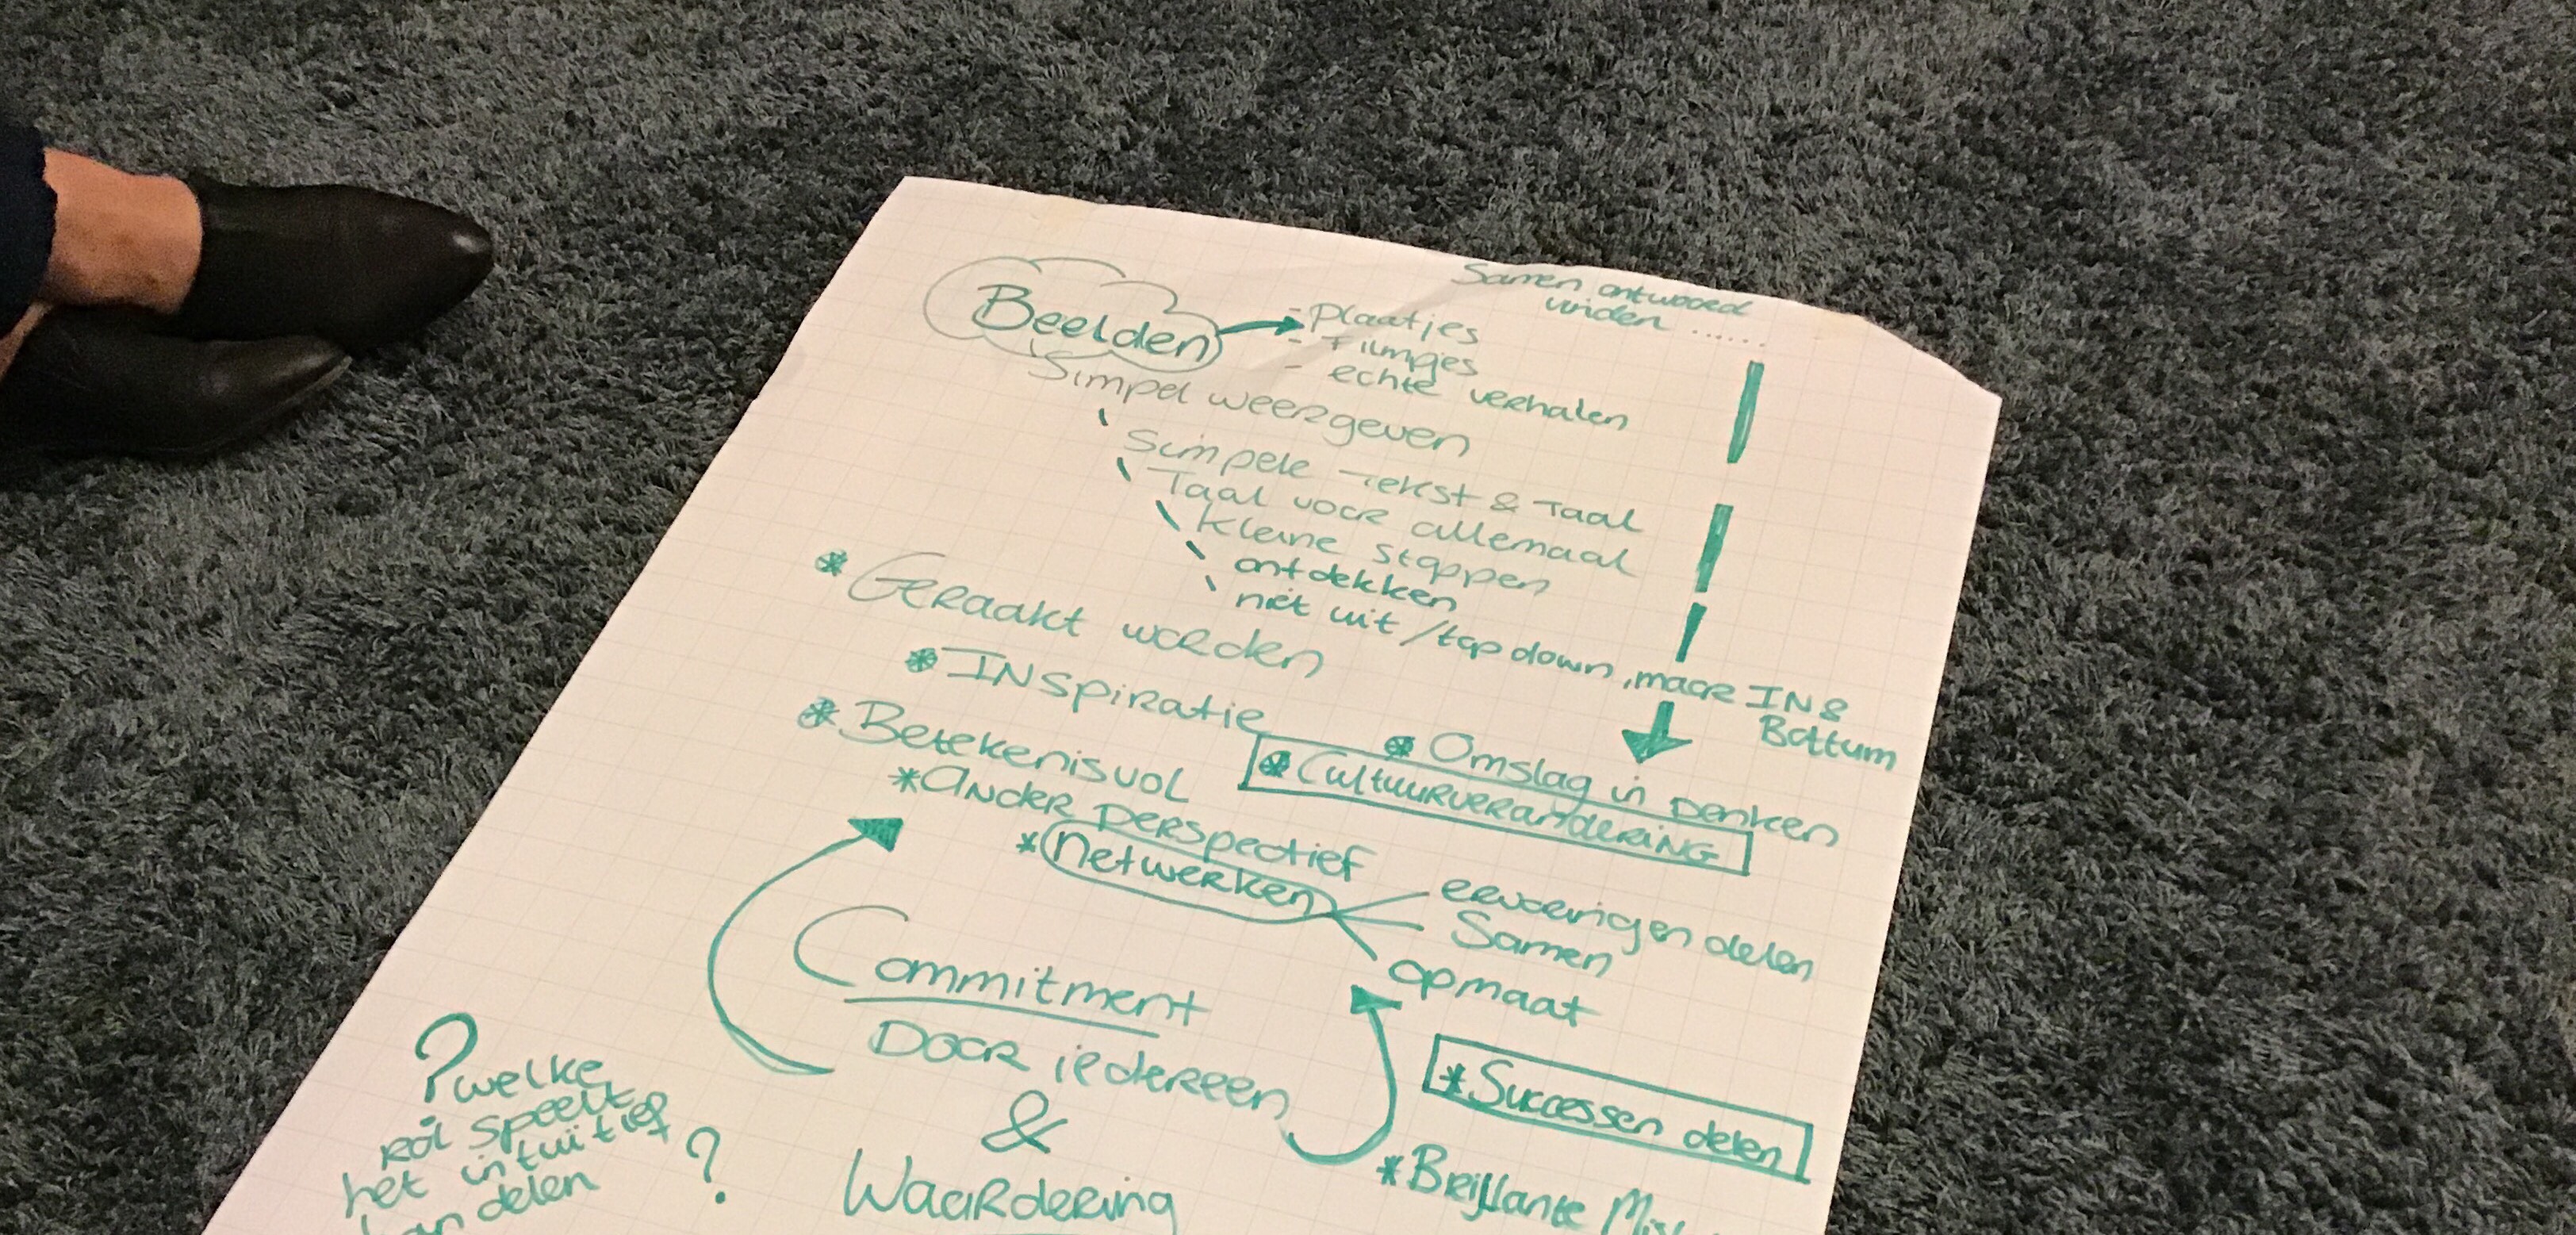 Samen antwoord
vinden ......
Beelden
- plaatjes
- filmpjes
- echte verhalen
Simpel weergeven
\ Simpele Tekst & Taal
\ Taal voor allemaal
\ kleine stappen
\ ontdekken
\ niet uit / top down, maar IN &
Bottum
* Geraakt worden
* INspiratie
* Betekenisvol
* Omslag in Denken
* Cultuurverandering
* ander perspectief
* netwerken
ervaringen delen
Samen
opmaat
Commitment
Door iedereen
&
Waardering
* Successen delen
* Briljante
? welke
rol speelt
het intuïtief
handelen ?